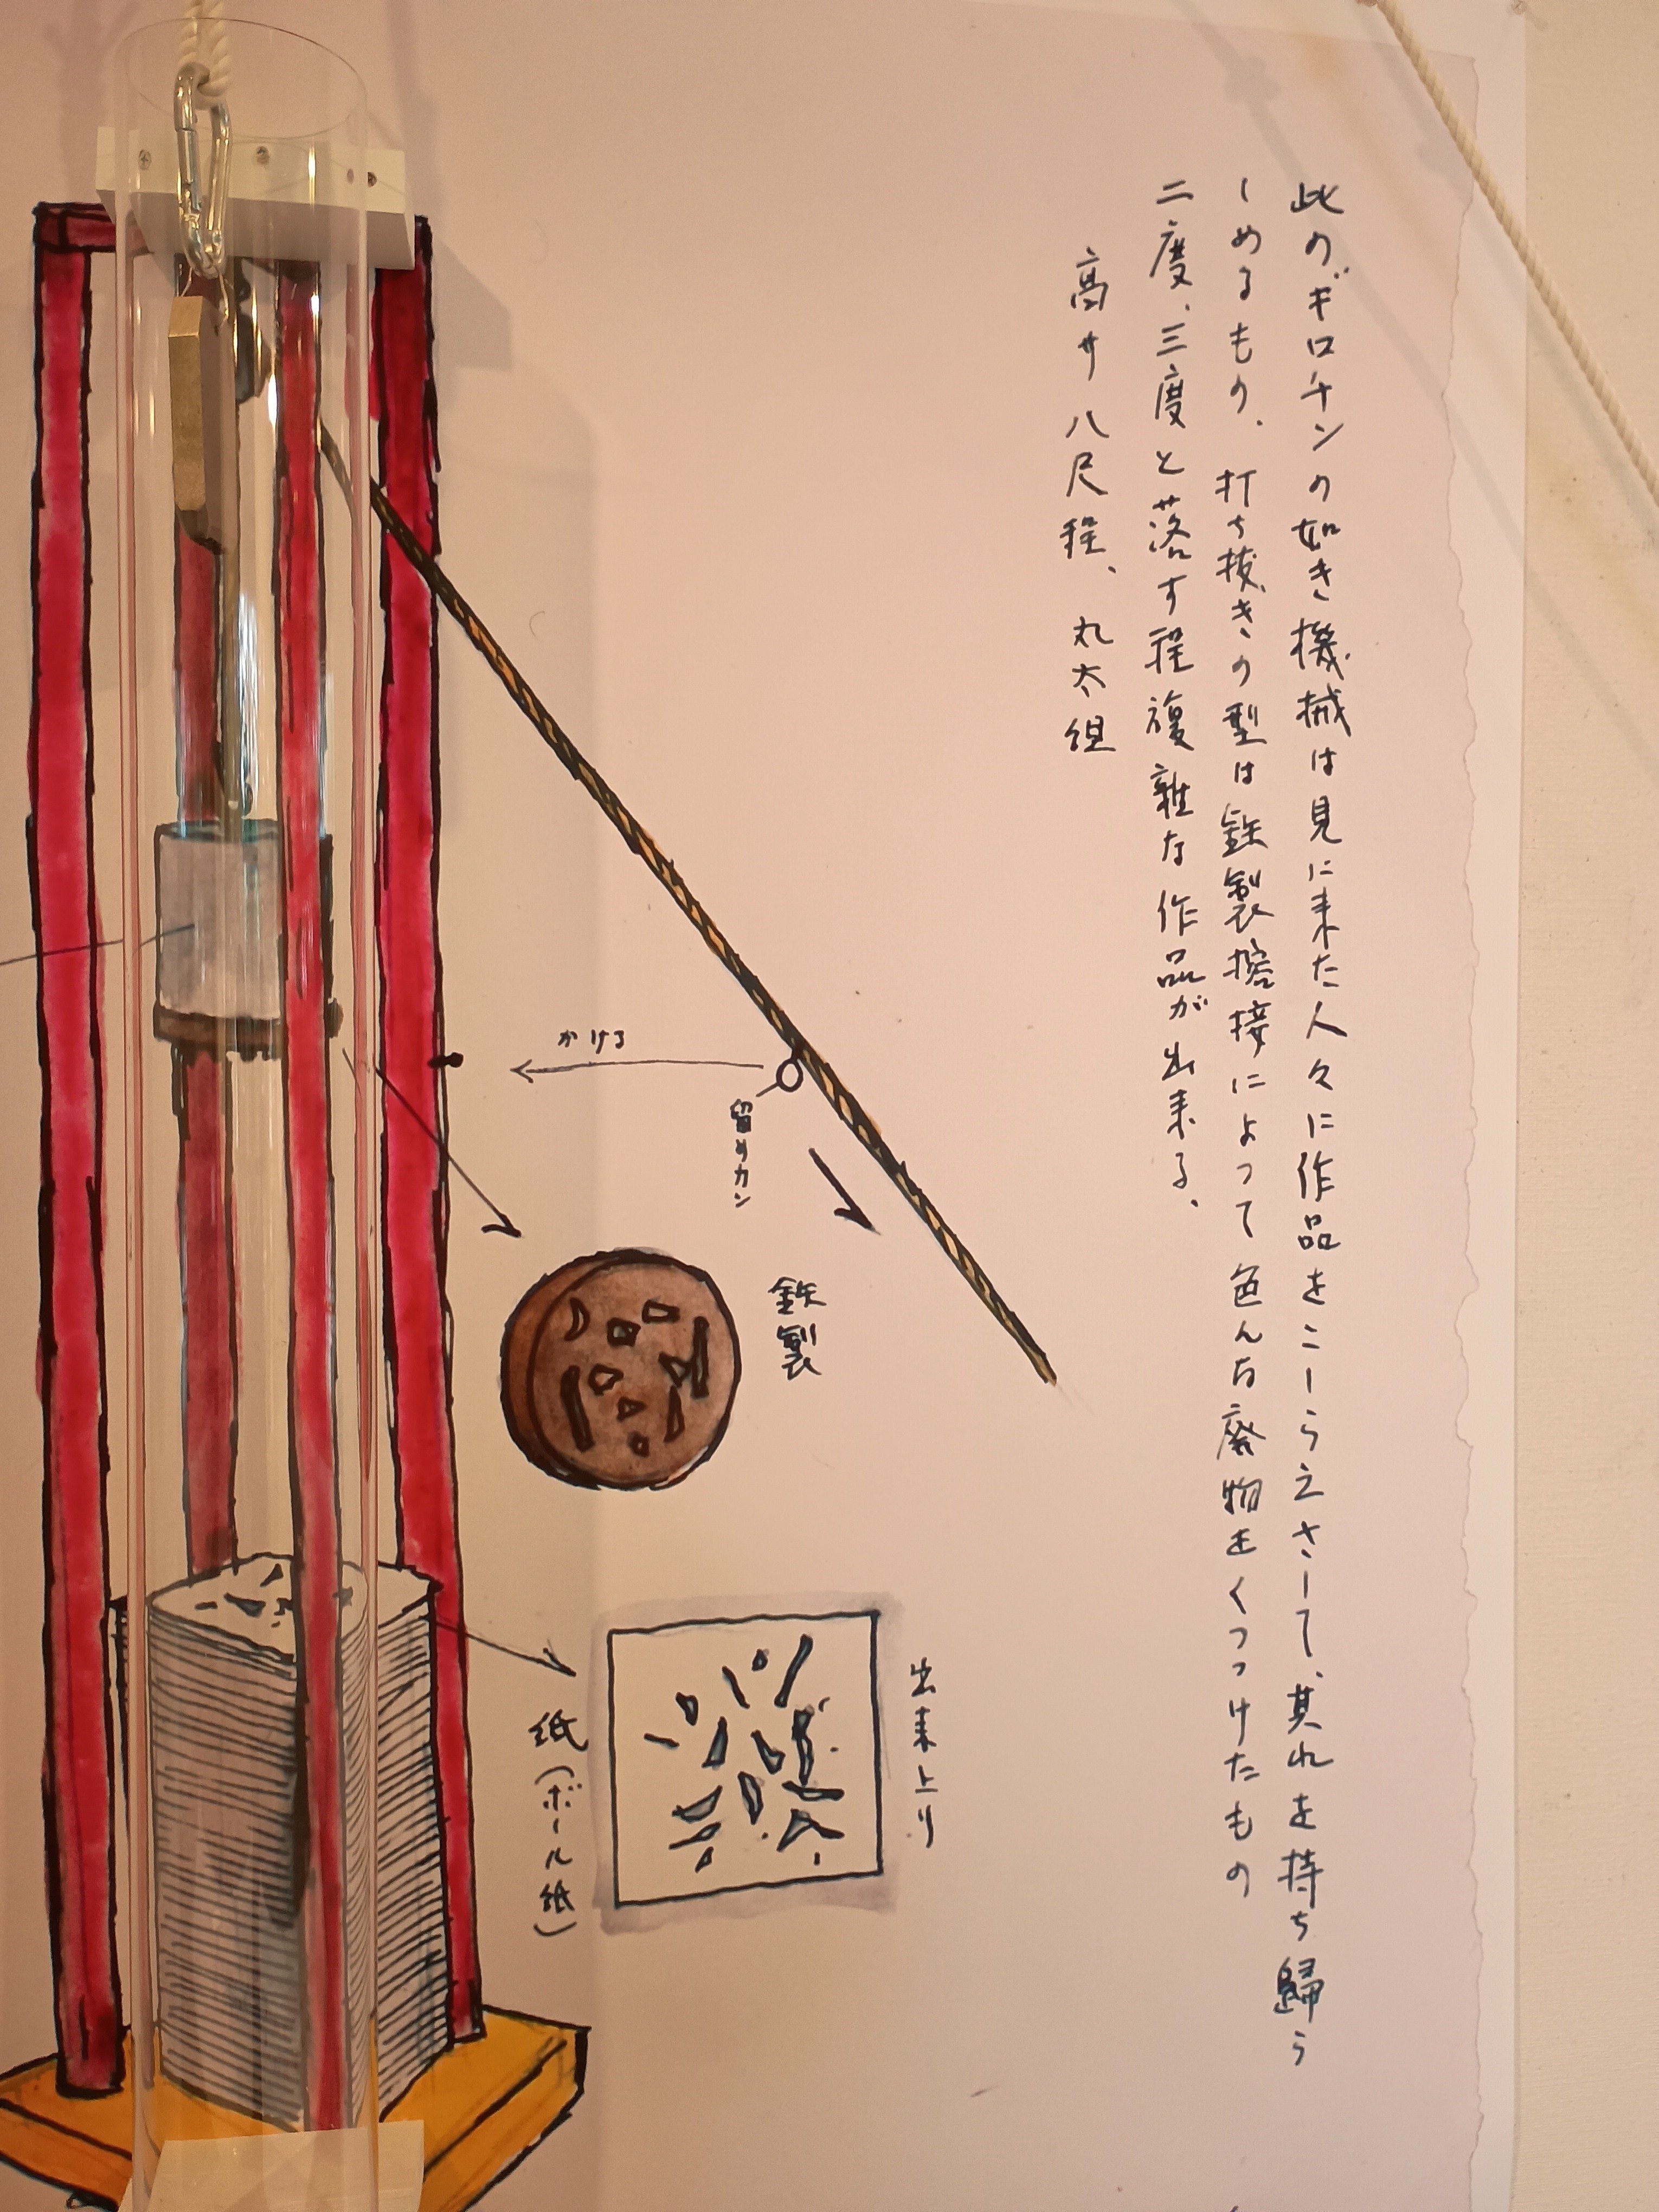 此のギロチンの如き機械は見に来た人々に作品をこしらえさして、其れを持ち歸ら
しめるもの、打ち抜きの型は鉄製搈接によって色んな廃物をくっつけたもの
二度、三度と落す程複雑な作品が出来る、
高サ八尺程、丸太組
かける
留メカン
鉄製
出来上り
紙(ボール紙)